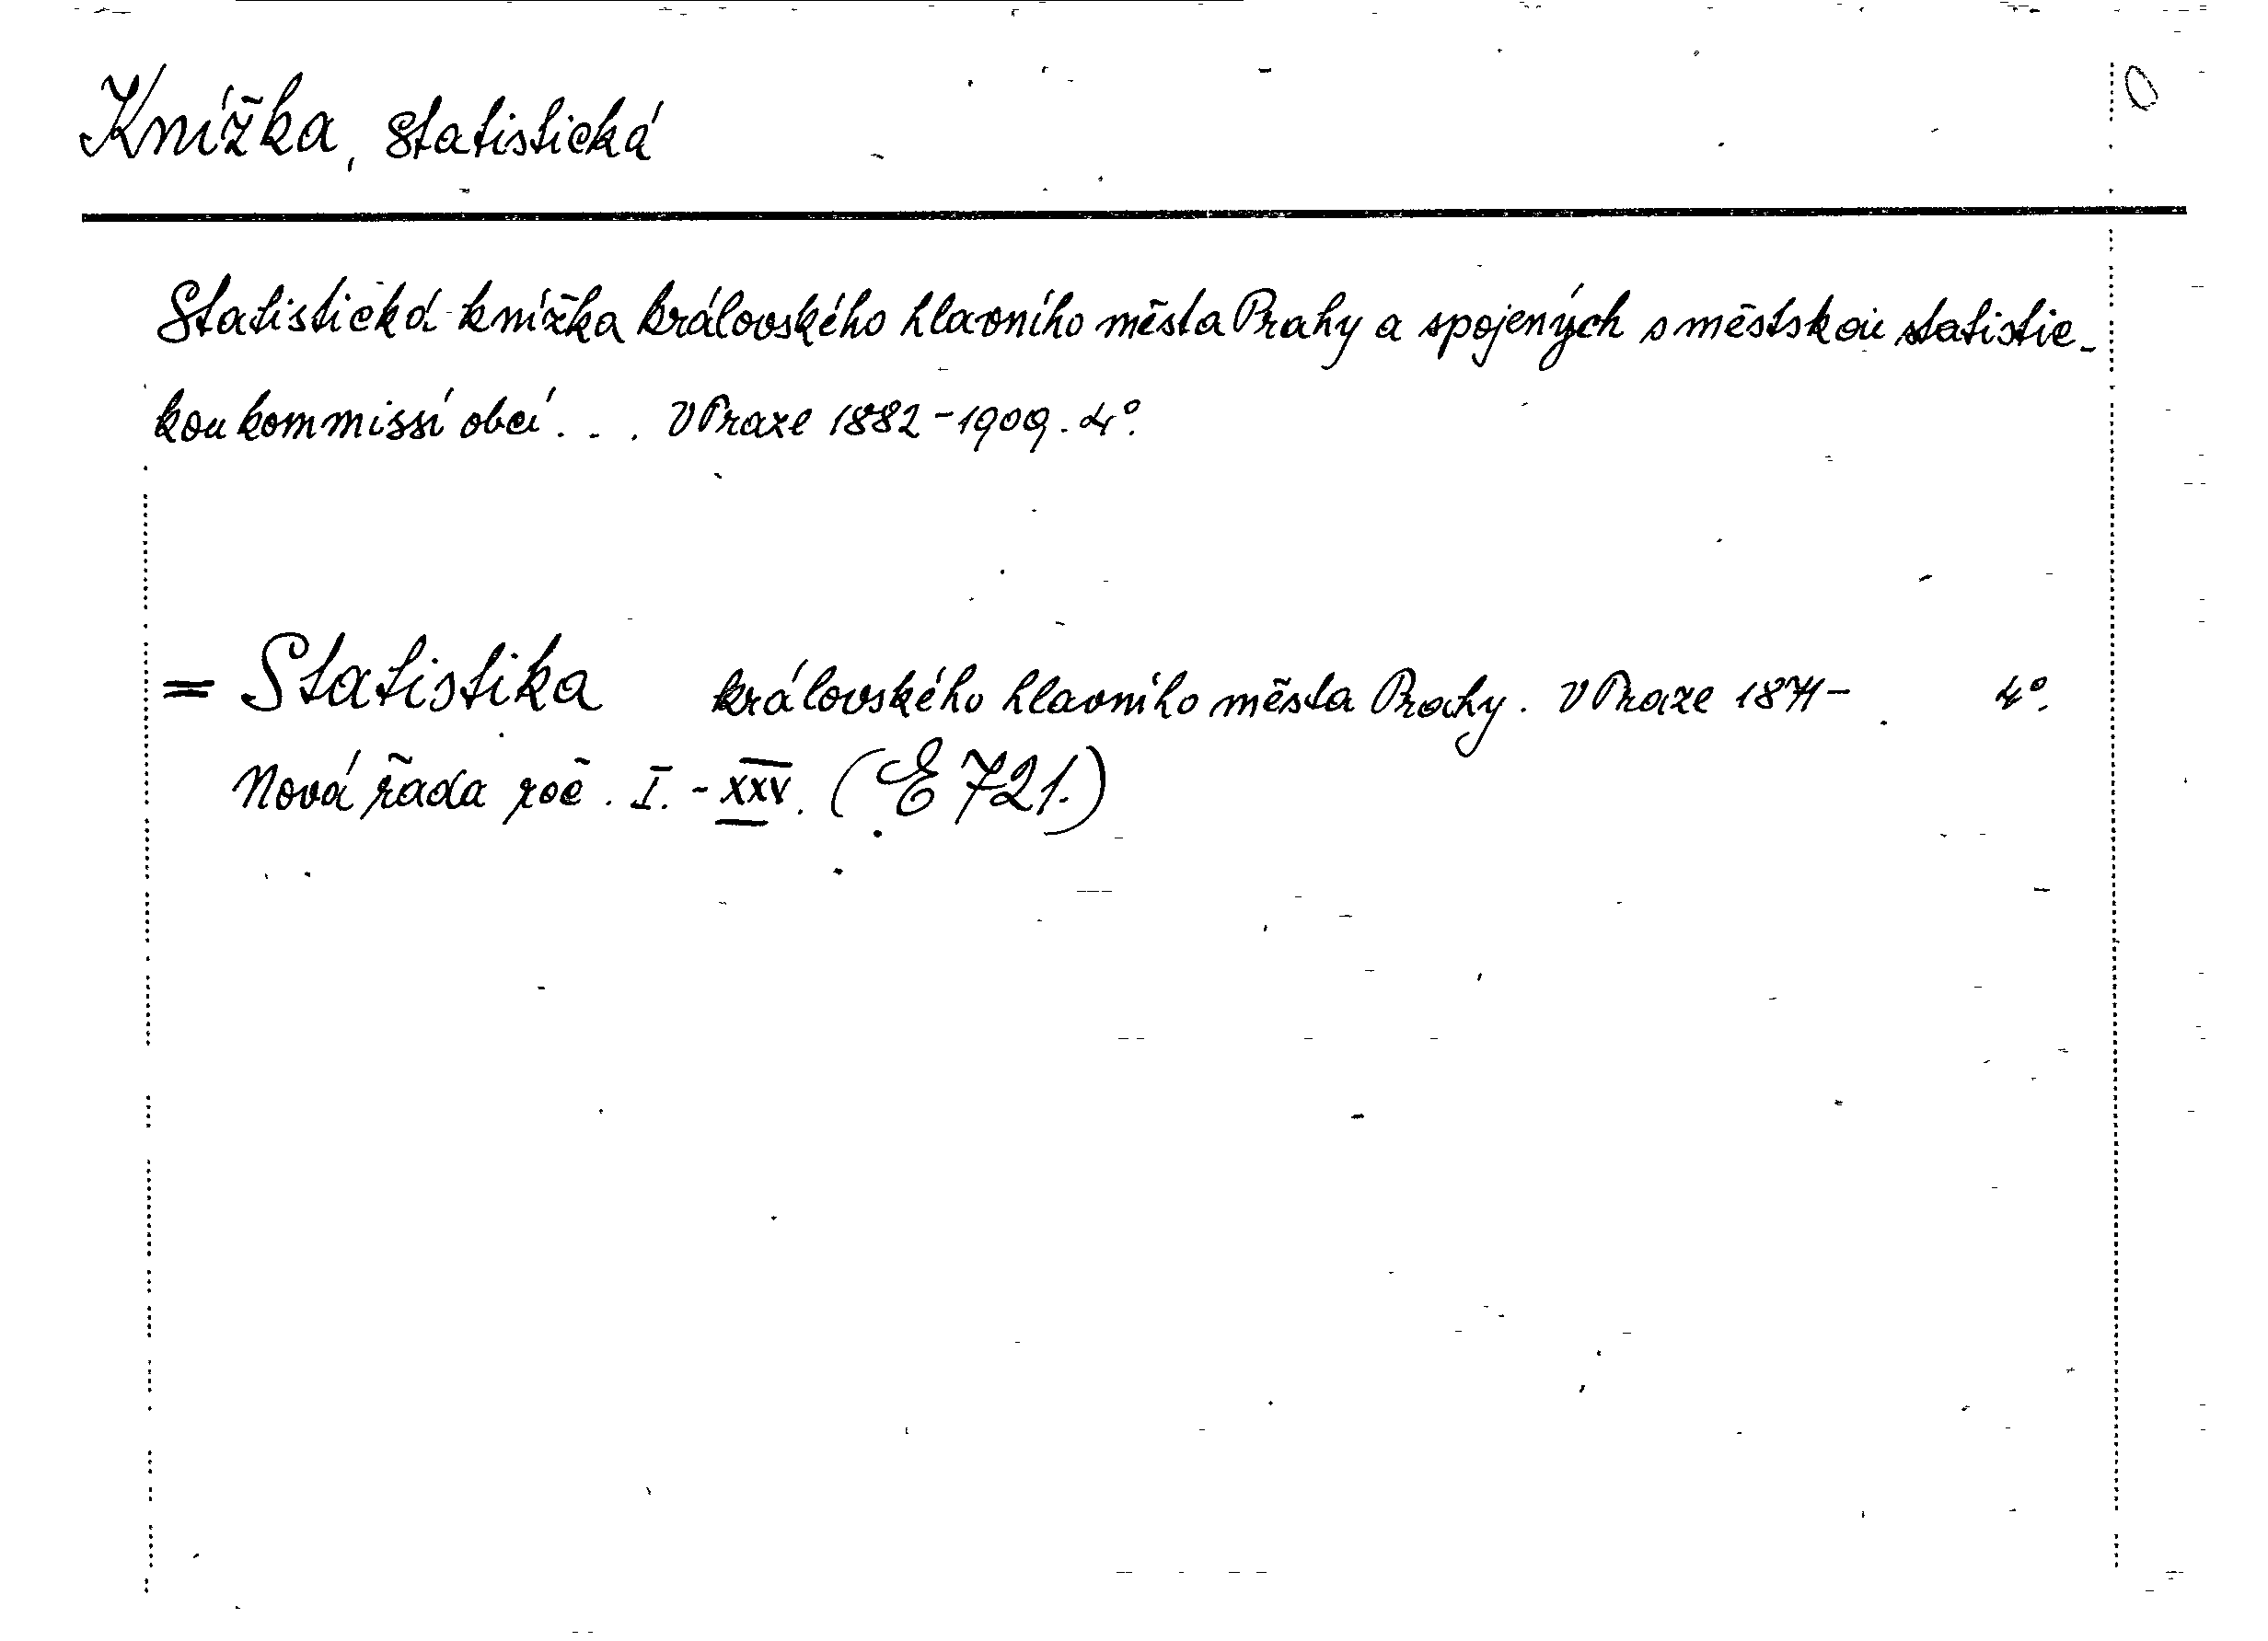 Knížka, statistická
Statistická knížka královského hlavního města Prahy a spojených s městskou statistic-
kou kommissí obcí... V Praze 1882-1909. 4°.
= Statistika královského hlavního města Prahy. V Praze 1871- . 4°.
Nová řada roč. I.-XXV. (E 721.)